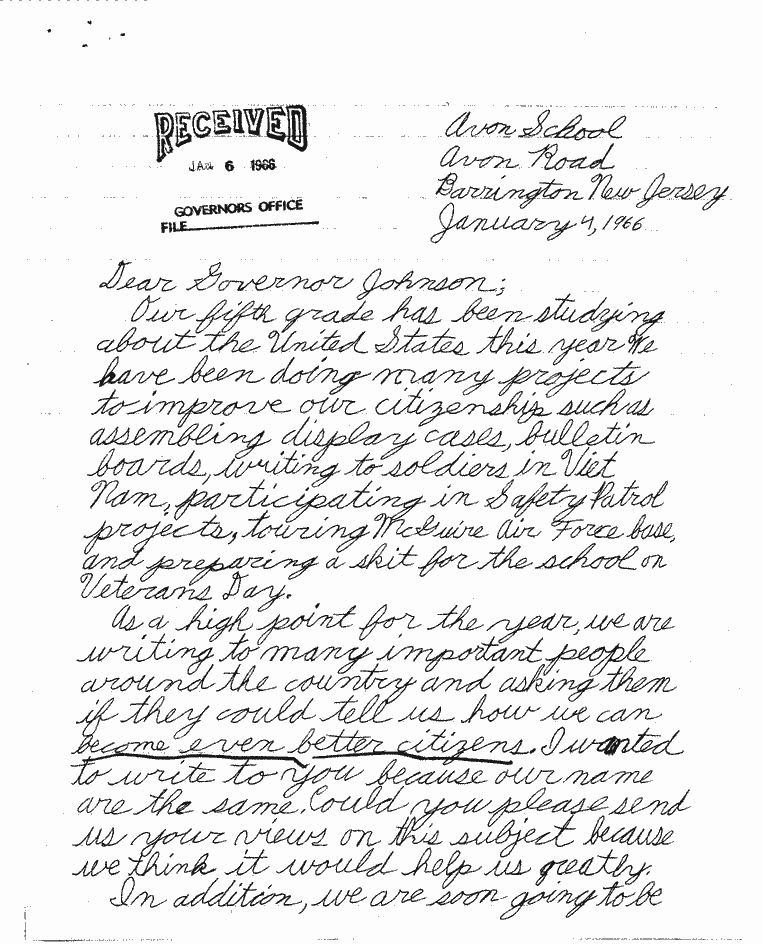 RECEIVED
JAN 6 1966
GOVERNORS OFFICE
FILE
Avon School
Avon Road
Barrington New Jersey
January 4, 1966
Dear Governor Johnson;
Our fifth grade has been studying
about the United States this year We
have been doing many projects
to improve our citizenship such as
assembling display cases, bulletin
boards, writing to soldiers in Viet
Nam, participating in Safety Patrol
projects, touring McGuire Air Force base,
and preparing a skit for the school on
Veterans Day.
As a high point for the year, we are
writing to many important people
around the country and asking them
if they could tell us how we can
become even better citizens. I wanted
to write to you because our name
are the same. Could you please send
us your views on this subject because
we think it would help us greatly.
In addition, we are soon going to be